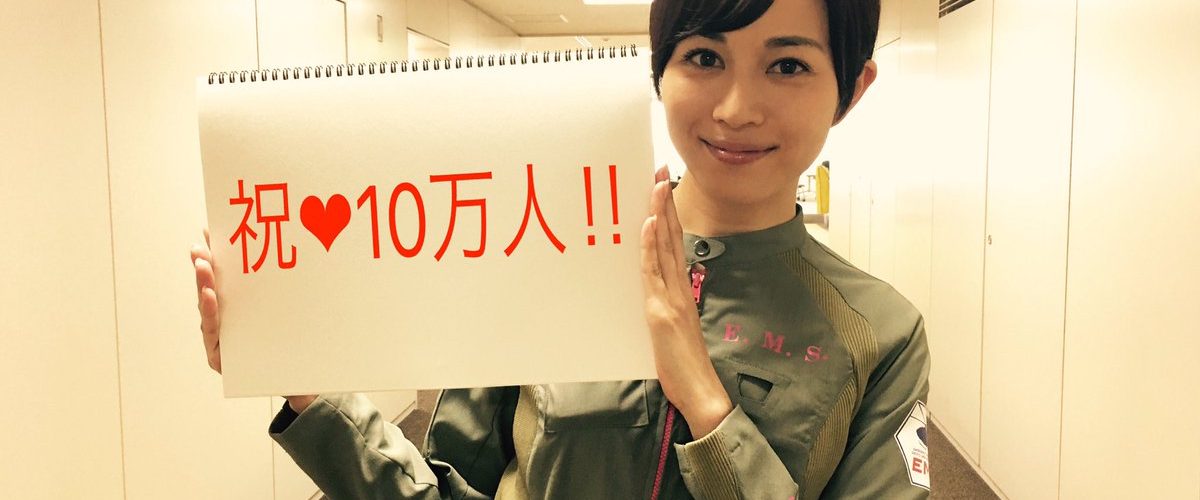 祝♥10万人!!
E. M. S.